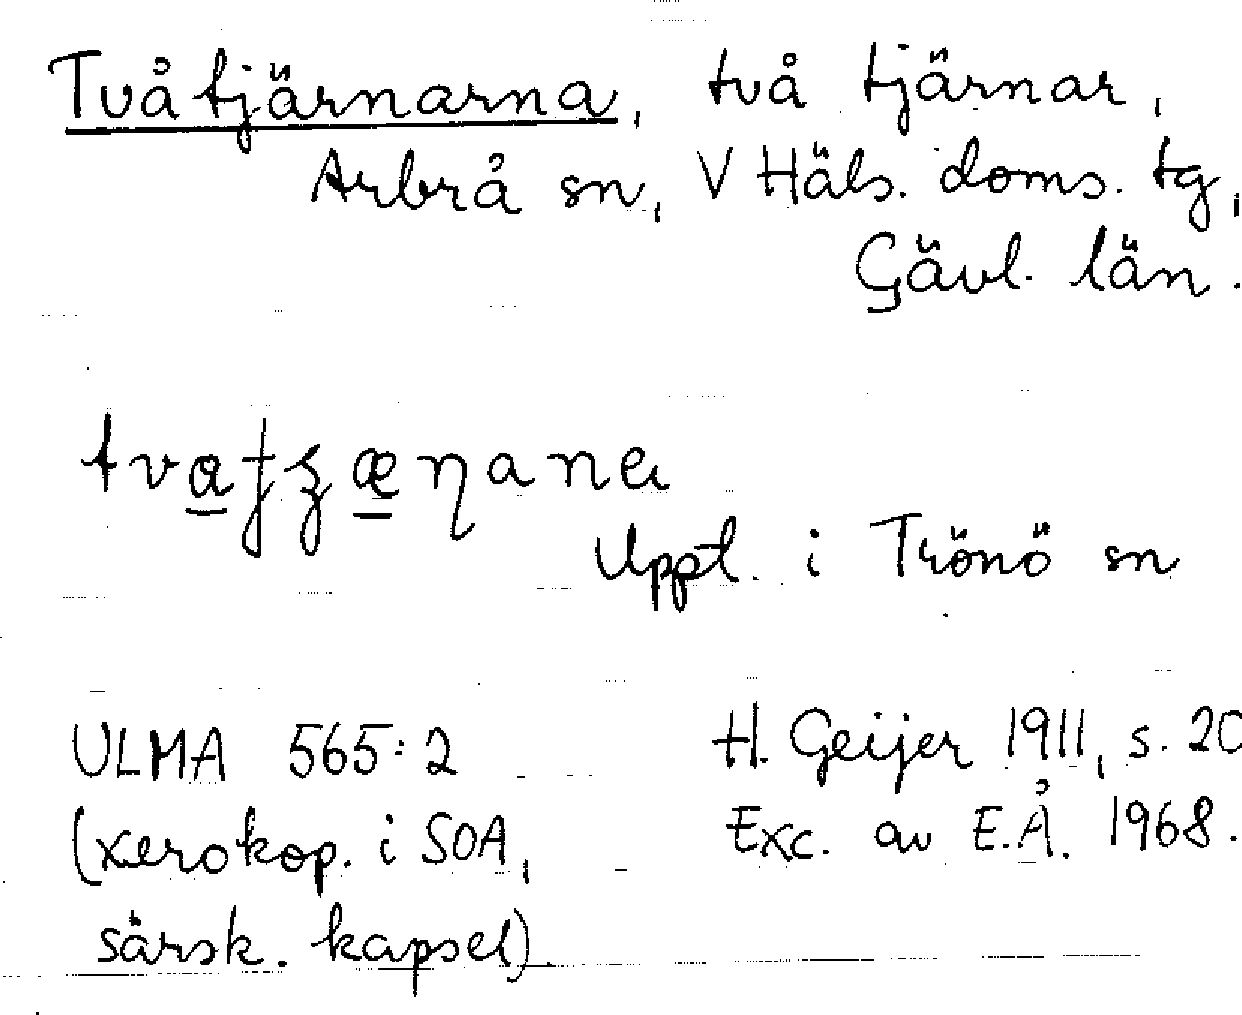 Tvåtjärnarna, två tjärnar,
Arbrå sn, V Häls. doms. tg,
Gävl. län.
Uppt. i Trönö sn
ULMA 565:2 H. Geijer 1911, s. 20
(xerokop. i SOA, Exc. av E.Å. 1968.
särsk. kapsel).